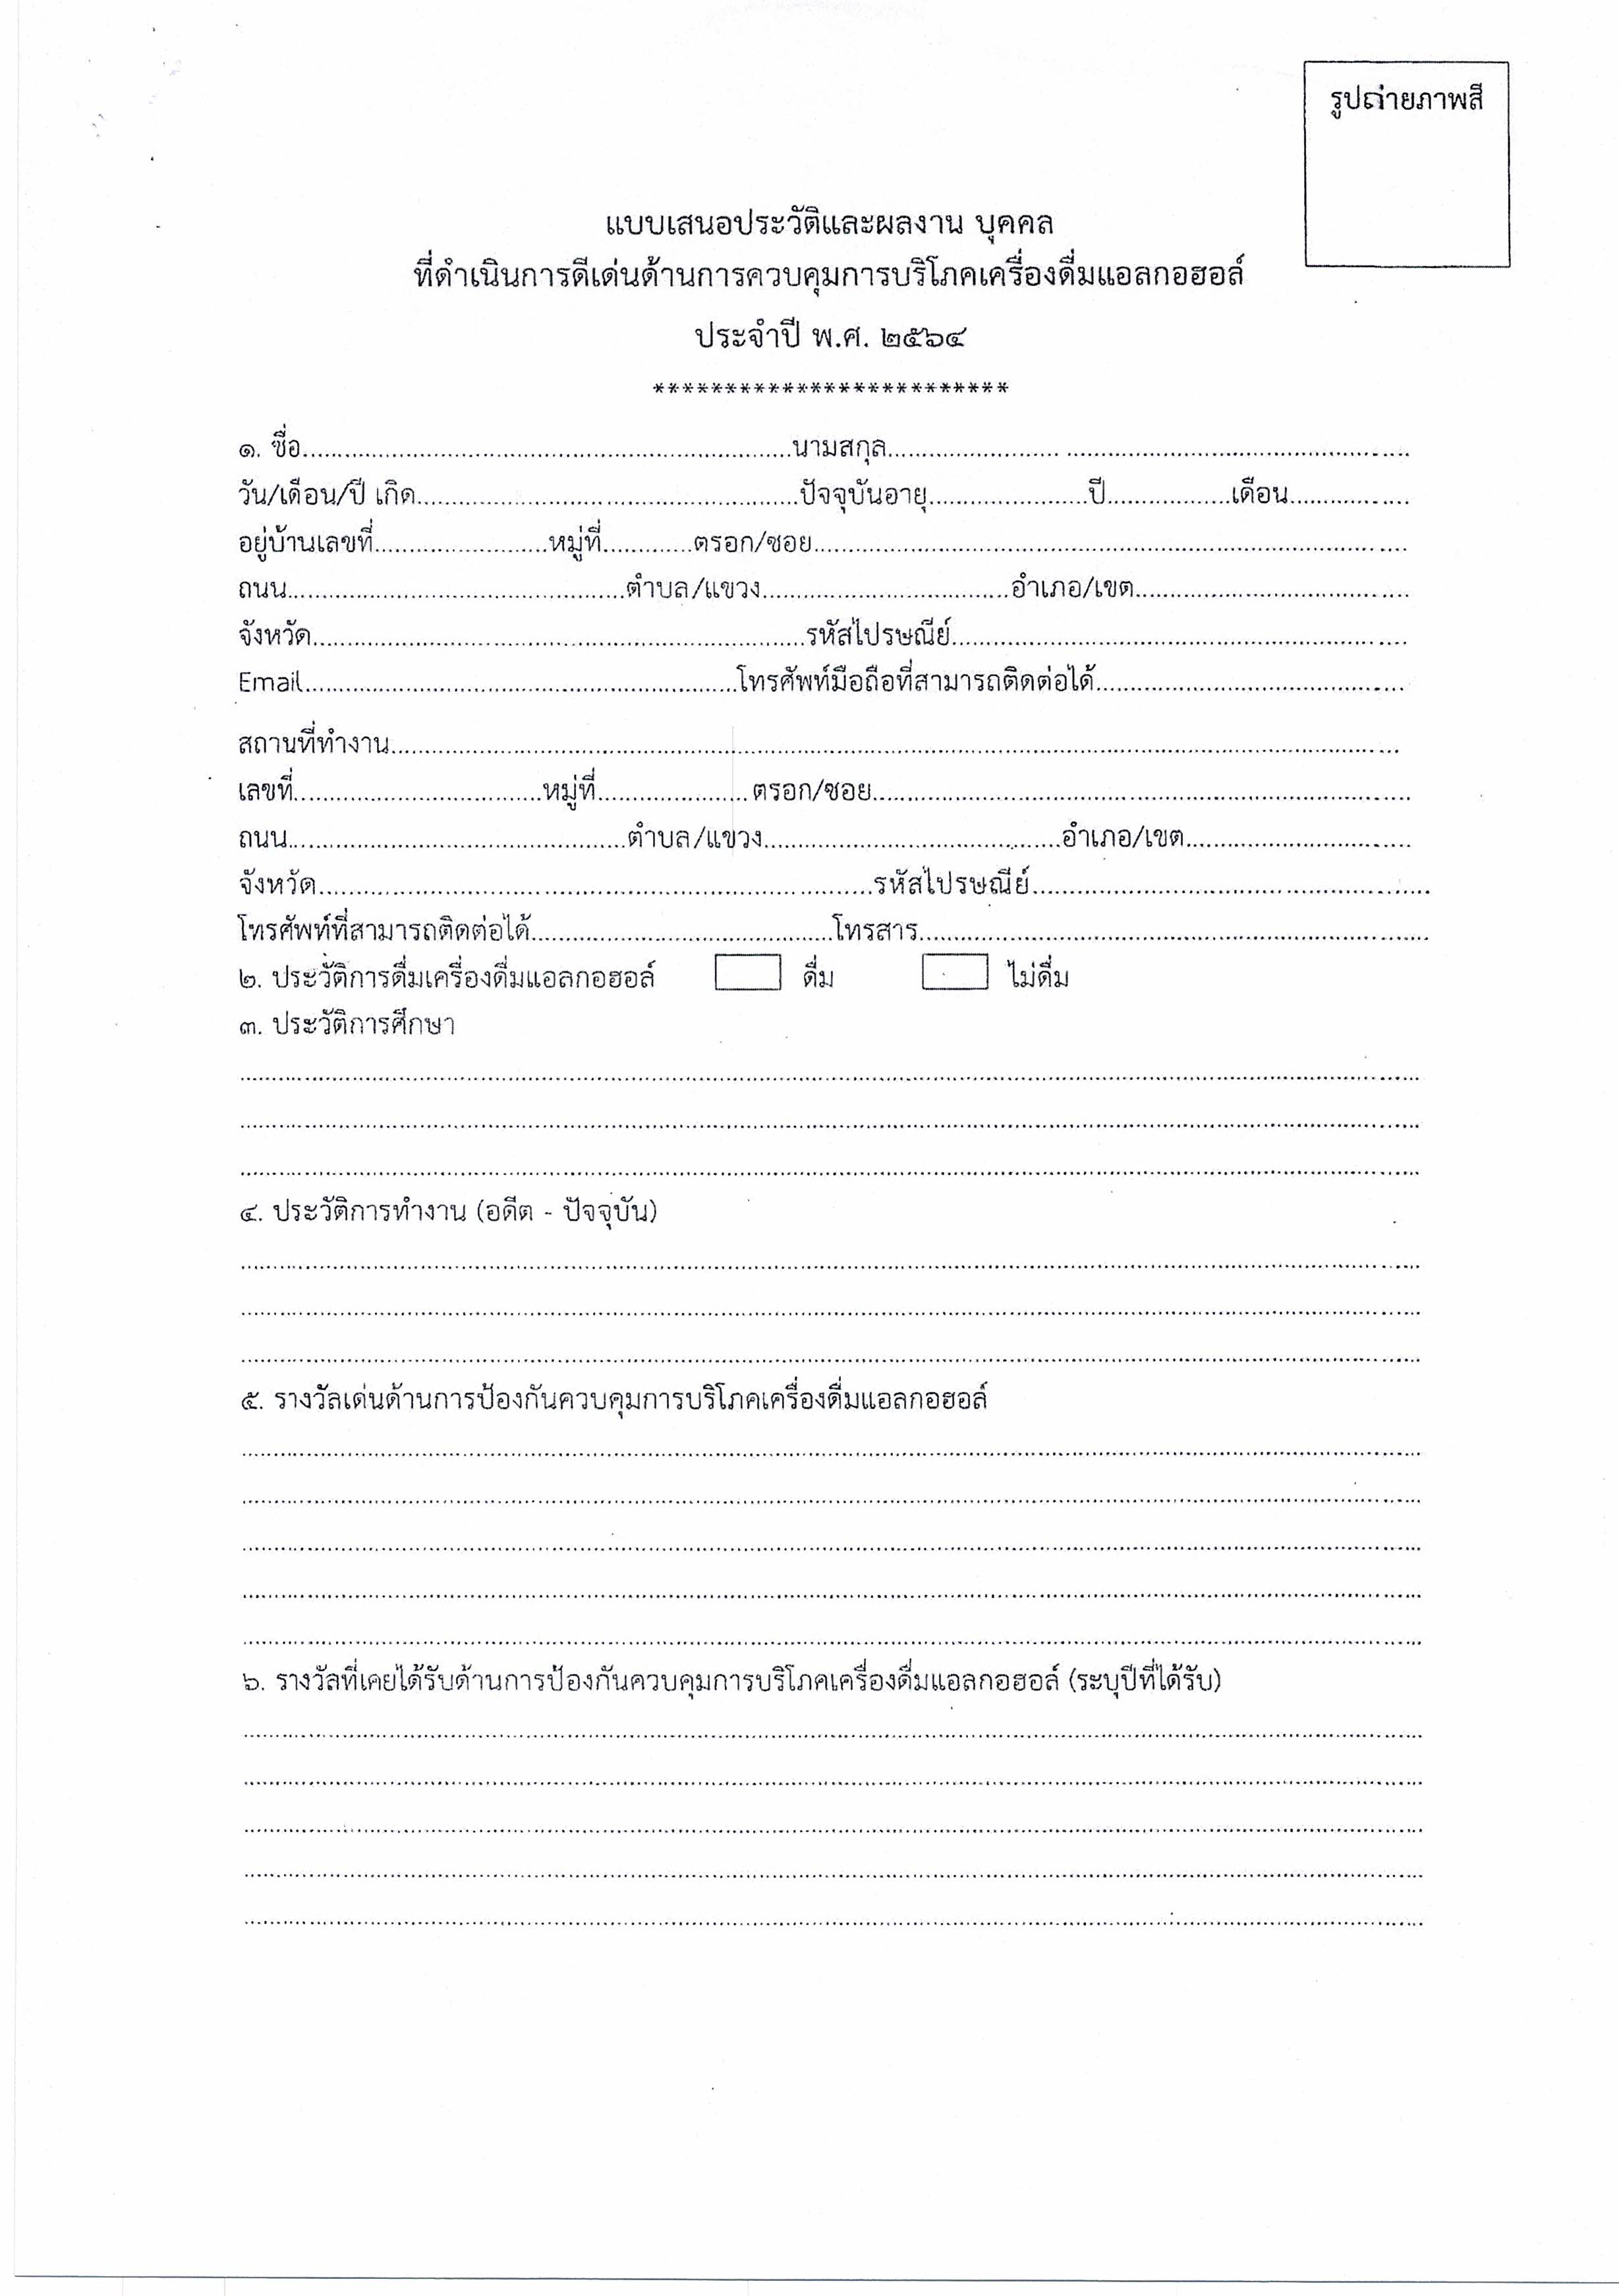 รูปถ่ายภาพสี
แบบเสนอประวัติและผลงาน บุคคล
ที่ดำเนินการดีเด่นด้านการควบคุมการบริโภคเครื่องดื่มแอลกอฮอล์
ประจำปี พ.ศ. ๒๕๖๔
*************************
๑. ชื่อ....................................นามสกุล....................................
วัน/เดือน/ปี เกิด..............................ปัจจุบันอายุ...............ปี..........เดือน..........
อยู่บ้านเลขที่...............หมู่ที่..........ตรอก/ซอย........................................
ถนน..............................ตำบล/แขวง....................อำเภอ/เขต....................
จังหวัด........................................รหัสไปรษณีย์........................................
Email........................................โทรศัพท์มือถือที่สามารถติดต่อได้..............................
สถานที่ทำงาน................................................................................
เลขที่....................หมู่ที่...............ตรอก/ซอย........................................
ถนน..............................ตำบล/แขวง.........................อำเภอ/เขต....................
จังหวัด........................................รหัสไปรษณีย์........................................
โทรศัพท์ที่สามารถติดต่อได้.........................โทรสาร........................................
๒. ประวัติการดื่มเครื่องดื่มแอลกอฮอล์ ดื่ม ไม่ดื่ม
๓. ประวัติการศึกษา
................................................................................
................................................................................
................................................................................
๔. ประวัติการทำงาน (อดีต - ปัจจุบัน)
................................................................................
................................................................................
................................................................................
๕. รางวัลเด่นด้านการป้องกันควบคุมการบริโภคเครื่องดื่มแอลกอฮอล์
................................................................................
................................................................................
................................................................................
................................................................................
................................................................................
๖. รางวัลที่เคยได้รับด้านการป้องกันควบคุมการบริโภคเครื่องดื่มแอลกอฮอล์ (ระบุปีที่ได้รับ)
................................................................................
................................................................................
................................................................................
................................................................................
................................................................................